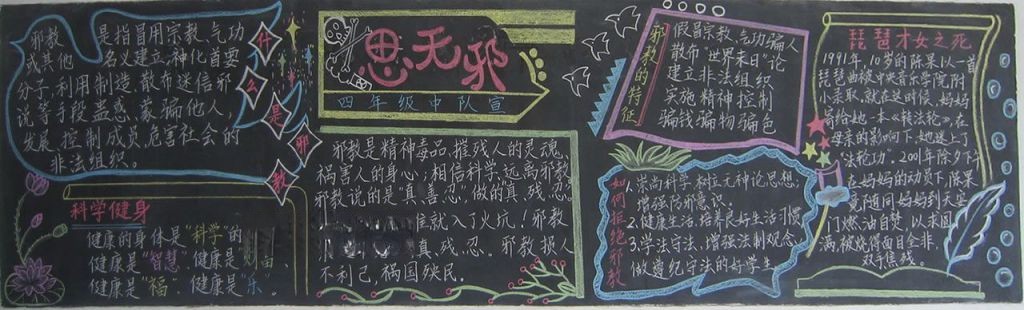 什么是邪教
邪教 是指冒用宗教、气功
或其他 名义建立、神化首要
分子，利用制造、散布迷信邪
说等手段蛊惑、蒙骗他人，
发展、控制成员，危害社会的
非法组织。
科学健身
健康的身体是"科学"的
健康是"智慧"，健康是
健康是"福"，健康是"乐"。
思无邪
四年级中队宣
邪教是精神毒品，摧残人的灵魂，
祸害人的身心；相信科学，远离邪教。
邪教说的是"真、善、忍"，做的真、残、忍。
谁就入了火坑！邪教
真、残、忍。邪教损人
不利己，祸国殃民。
邪教的特征
假冒宗教、气功骗人
散布"世界末日"论
建立非法组织
实施精神控制
骗钱骗物骗色
如何拒绝邪教
1.崇尚科学，树立无神论思想，
增强防邪意识。
2.健康生活，培养良好生活习惯
3.学法守法，增强法制观念，
做遵纪守法的好学生
琵琶才女之死
1991年，10岁的陈果以一首
琵琶曲被中央音乐学院附
小录取，就在这时候，妈妈
寄给她一本《转法轮》，在
母亲的影响下她迷上了
"法轮功"。2001年除夕下午
在妈妈的动员下，陈果
竟随同妈妈到天安
门燃油自焚，以求圆
满，被烧得面目全非，
双手焦残。